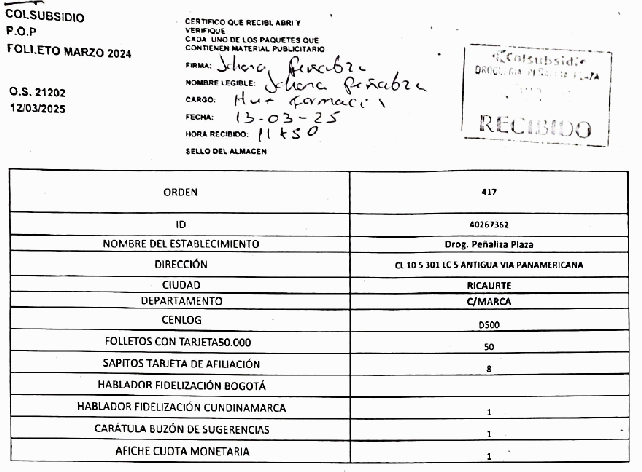 COLSUBSIDIO
P.O.P
FOLLETO MARZO 2024
O.S. 21202
12/03/2025
CERTIFICO QUE RECIBI, ABRI Y
VERIFIQUE
CADA UNO DE LOS PAQUETES QUE
CONTIENEN MATERIAL PUBLICITARIO
FIRMA:
NOMBRE LEGIBLE:
CARGO:
FECHA: 13-03-25
HORA RECIBIDO:
SELLO DEL ALMACEN
Colsubsidio
RECIBIDO
ORDEN 417
ID 40267362
NOMBRE DEL ESTABLECIMIENTO Drog. Peñaliza Plaza
DIRECCIÓN CL 10 5 301 LC 5 ANTIGUA VIA PANAMERICANA
CIUDAD RICAURTE
DEPARTAMENTO C/MARCA
CENLOG D500
FOLLETOS CON TARJETA50.000 50
SAPITOS TARJETA DE AFILIACIÓN 8
HABLADOR FIDELIZACIÓN BOGOTÁ
HABLADOR FIDELIZACIÓN CUNDINAMARCA 1
CARÁTULA BUZÓN DE SUGERENCIAS 1
AFICHE CUOTA MONETARIA 1